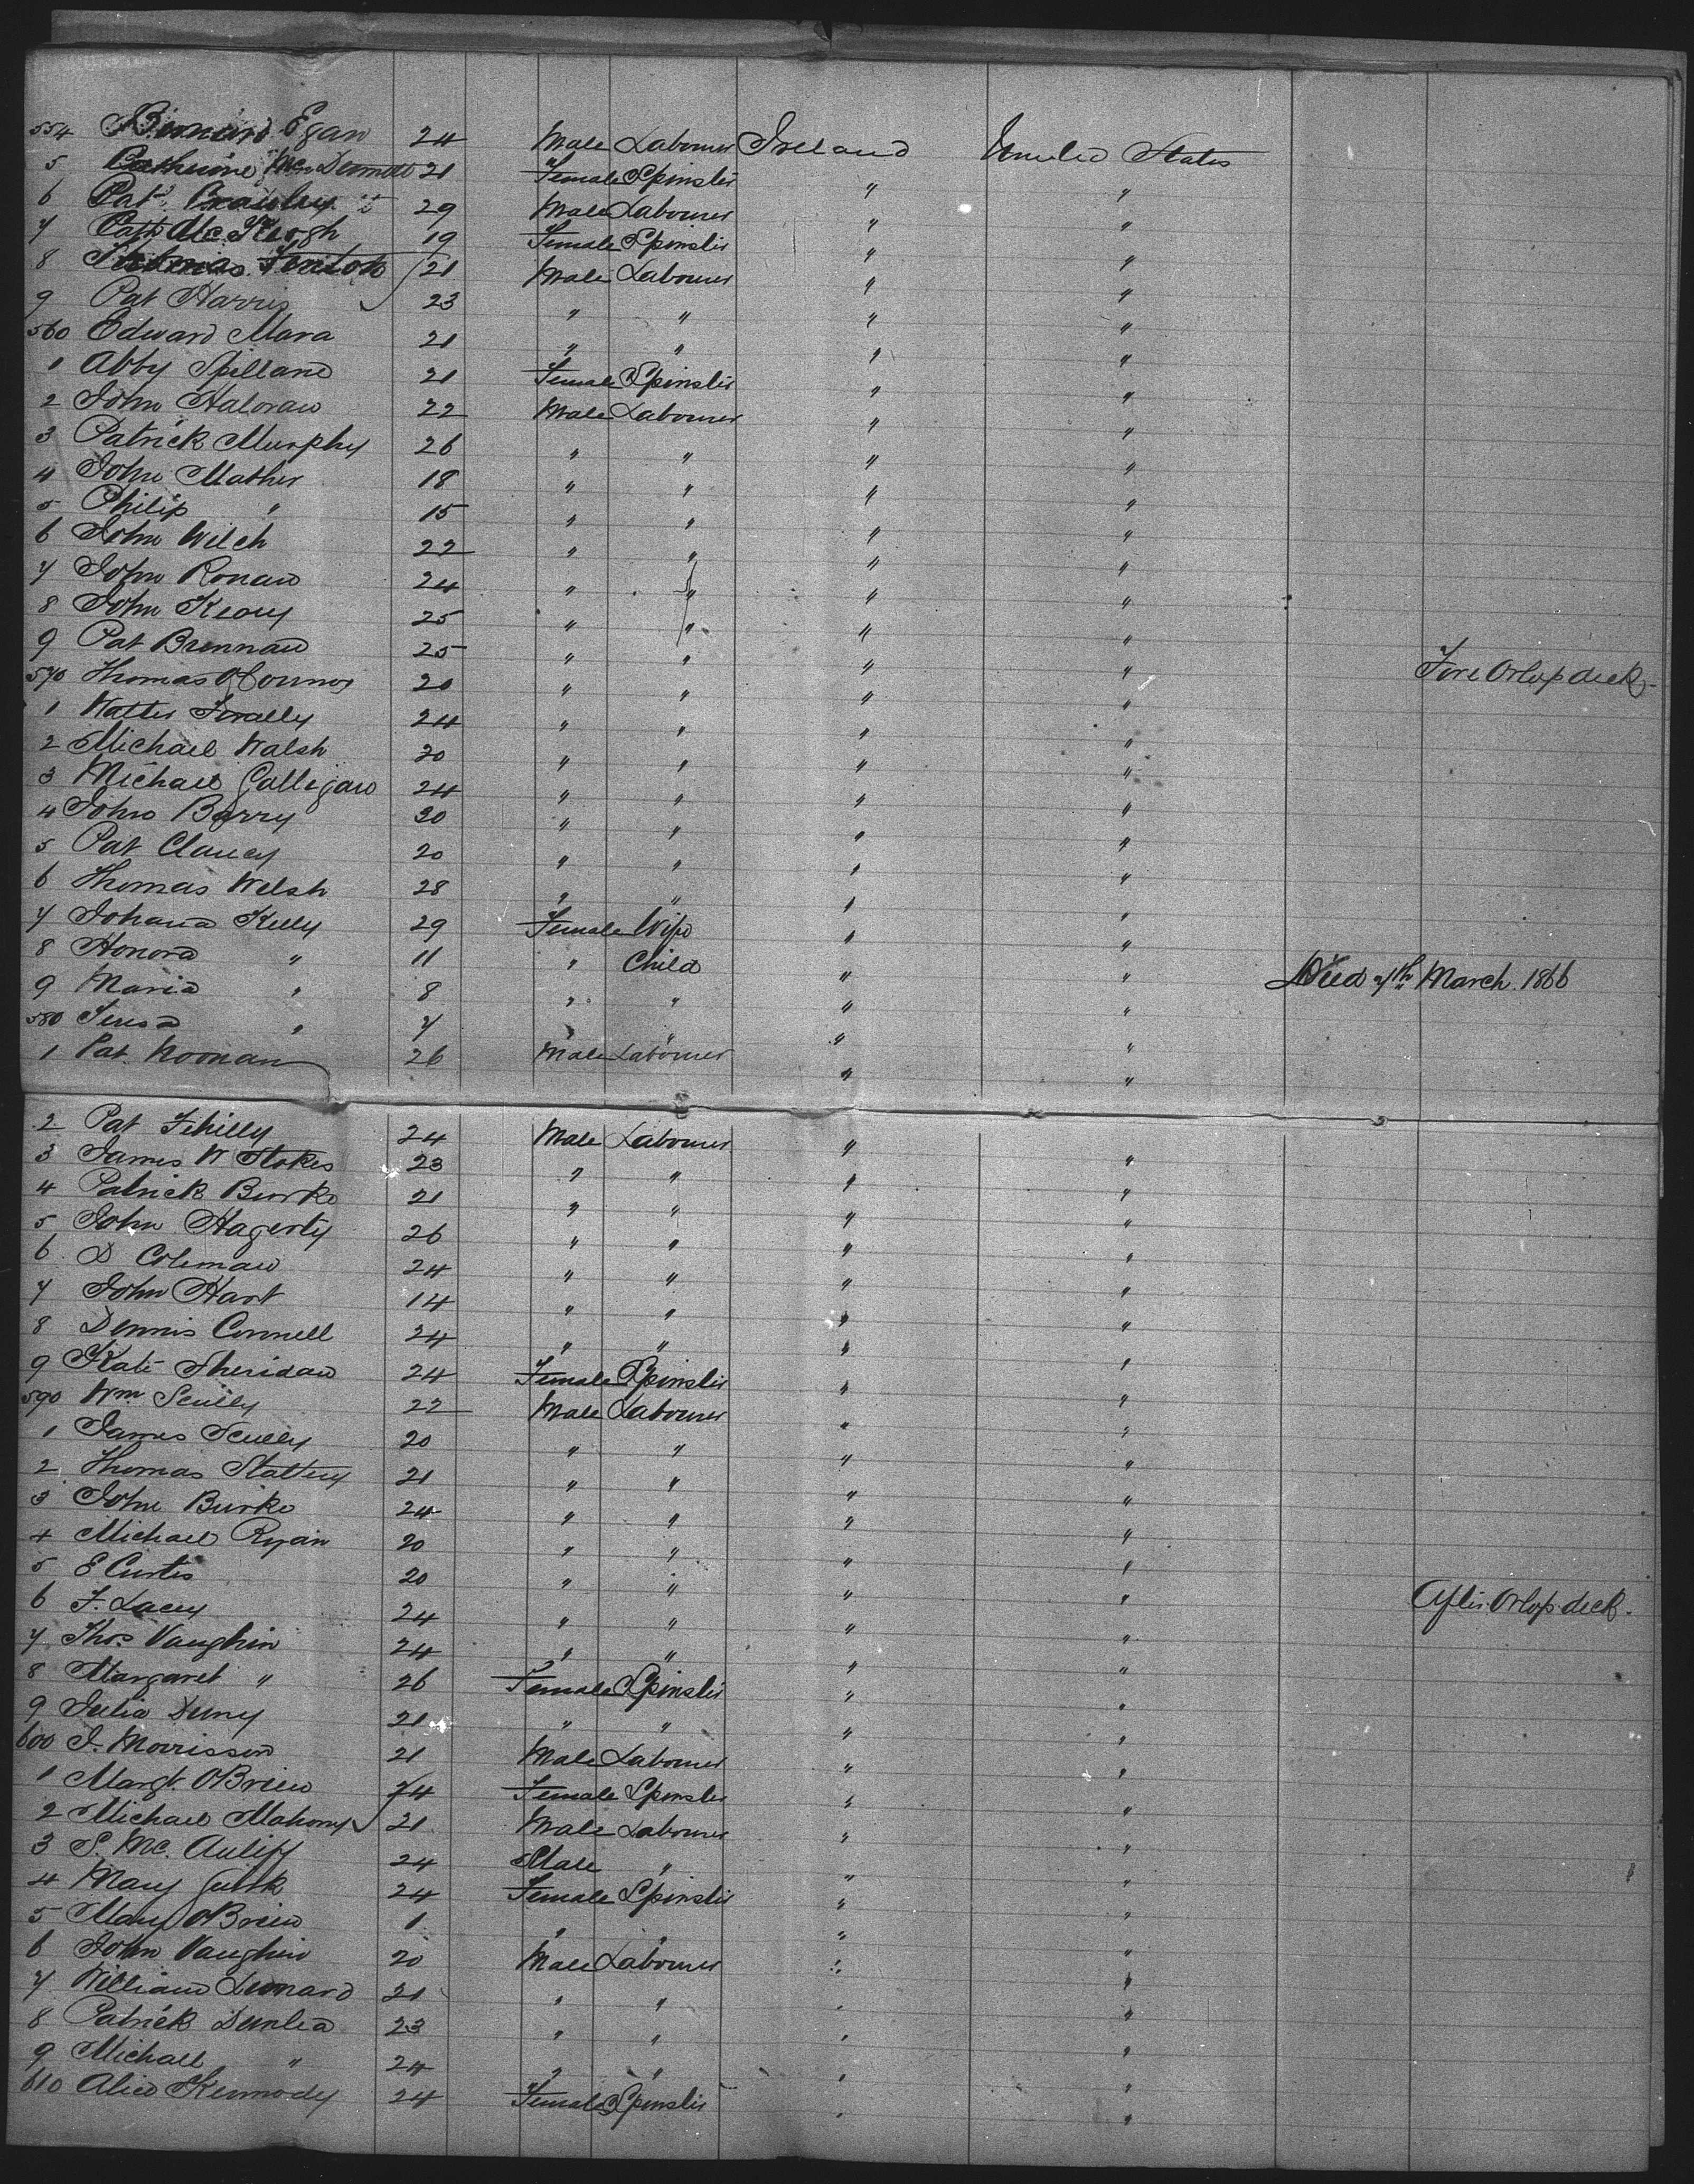 554 Bernard Egan 24 Male Labourer Ireland United States
5 Catherine McDermott 21 Female Spinster " "
6 Pat Crawley 29 Male Labourer " "
7 Cath McKeogh 19 Female Spinster " "
8 Thomas Fenton 21 Male Labourer " "
9 Pat Harris 23 " " " "
560 Edward Mara 21 " " " "
1 Abby Spillane 21 Female Spinster " "
2 John Haloran 22 Male Labourer " "
3 Patrick Murphy 26 " " " "
4 John Mather 18 " " " "
5 Philip " 15 " " " "
6 John Welch 22 " " " "
7 John Ronan 24 " " " "
8 John Keary 25 " " " "
9 Pat Brennan 25 " " " " Fore Orlop deck
570 Thomas O'Connor 20 " " " "
1 Walter 24 " " " "
2 Michael Walsh 20 " " " "
3 Michael Galligan 24 " " " "
4 John Barry 20 " " " "
5 Pat Clancy 20 " " " "
6 Thomas Welsh 28 " " " "
7 Johana Kelly 29 Female Wife " "
8 Honora " 11 " Child " " Died 7th March. 1866
9 Maria " 8 " " " "
580 Teresa " 7 " " " "
1 Pat Noonan 26 Male Labourer " "
2 Pat Fehilly 24 Male Labourer " "
3 James W Stokes 23 " " " "
4 Patrick Burke 21 " " " "
5 John Hagerty 26 " " " "
6 D Coleman 24 " " " "
7 John Hart 14 " " " "
8 Dennis Connell 24 " " " "
9 Kate Sheridan 24 Female Spinster " "
590 Wm Scully 22 Male Labourer " "
1 James Scully 20 " " " "
2 Thomas Slattery 21 " " " "
3 John Burke 24 " " " "
4 Michael Ryan 20 " " " "
5 E Curtis 20 " " " " After Orlop deck.
6 F. Lacey 24 " " " "
7 Thos Vaughin 24 " " " "
8 Margaret " 26 Female Spinster " "
9 Julia Deny 21 " " " "
600 J. Morrisson 21 Male Labourer " "
1 Margt. OBrien 24 Female Spinster " "
2 Michael Mahony 21 Male Labourer " "
3 S. Mc. Auliff 24 Male " " "
4 Mary 24 Female Spinster " "
5 Mary OBrien 1 " " " "
6 John Vaughin 20 Male Labourer " "
7 William Leonard 21 " " " "
8 Patrick Dunlea 23 " " " "
9 Michael " 24 " " " "
610 Alice Kennedy 24 Female Spinster " "